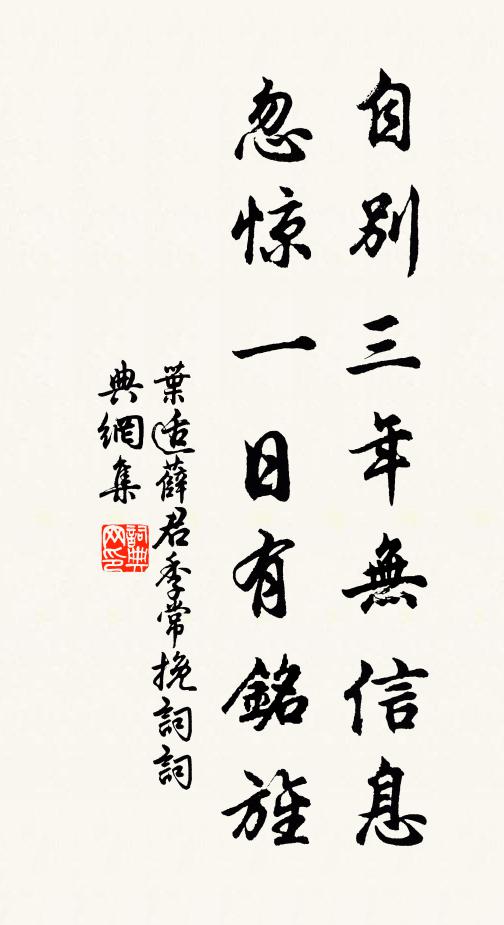 自别三年無信息
忽惊一日有銘旌
葉适薛君季常挽詞詞
典網集
詞典网印